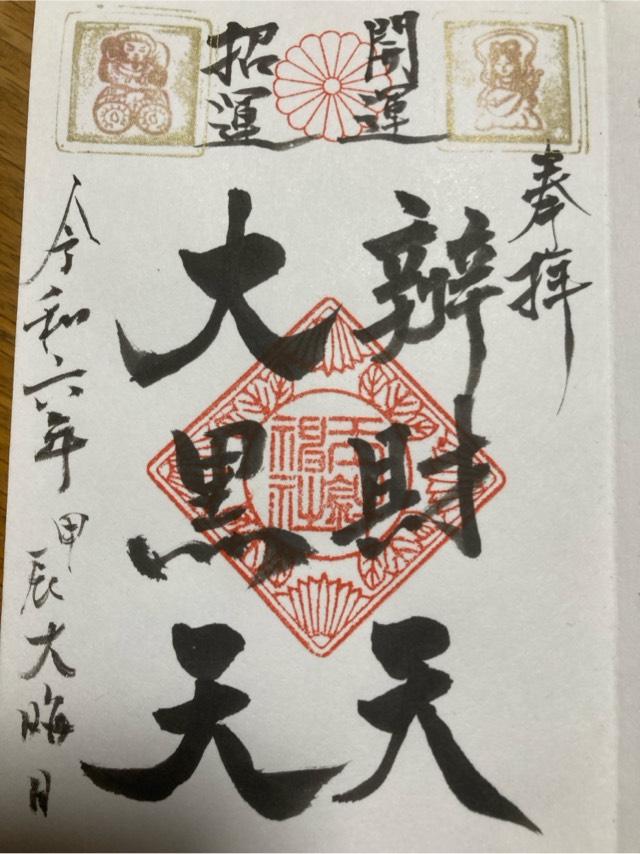 奉拝
開運
招運
辨財天
大黒天
令和六年 甲辰 大晦日